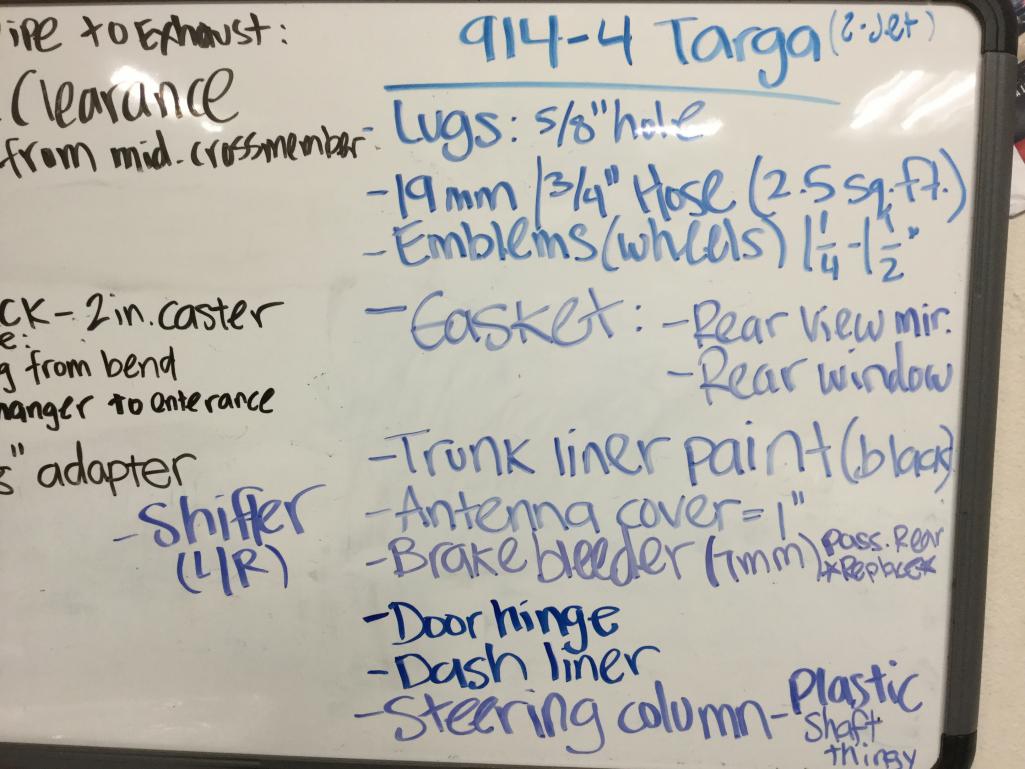 ipe to Exhaust:
Clearance
from mid. crossmember
ck - 2 in. caster
e:
g from bend
hanger to enterance
" adapter
- Shifter
(L/R)
914-4 Targa (2-Jet)
- Lugs: 5/8" hole
- 19mm / 3/4" Hose (2.5 sq. ft.)
- Emblems (wheels) 1 1/4 - 1 1/2"
- Gasket: - Rear view mir.
- Rear window
- Trunk liner paint (black)
- Antenna cover = 1"
- Brake bleeder (7mm) pass. Rear
*Replace*
- Door hinge
- Dash liner
- Steering column - Plastic
shaft
thingy